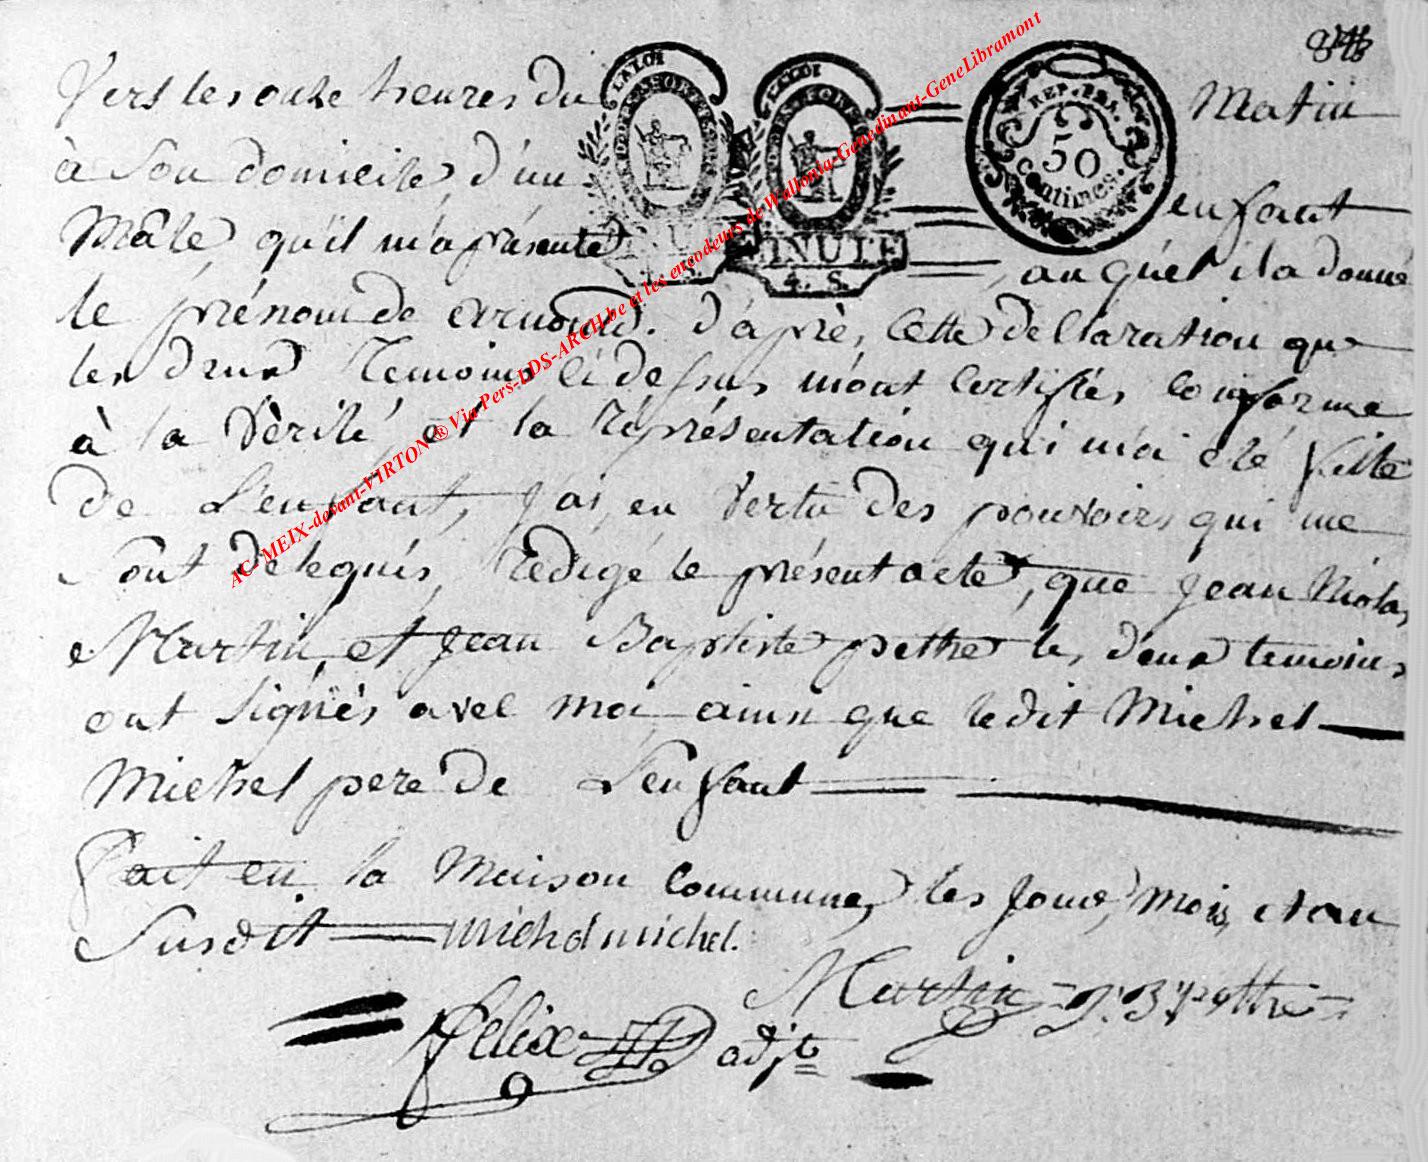 Vers les onze heures du matin
à Son domicile, d'un enfant
Mâle, qu'il m'a présenté, au quel il a donné
le prénom de arnould. d'après Cette declaration que
les deux Temoins ci dessus m'ont Certifiés Conforme
à la Vérité, et la réprésentation qui ma été faite
de L'enfant, j'ai, en Vertu des pouvoirs qui me
Sont delegués, redigé le présent acte, que Jean Nicolas
Martin, et Jean Baptiste pethe les deux temoins
ont Signés avec moi ainsi que ledit Michel
Michel pere de L'enfant
fait en la Maison Commune, les jour, mois, et an
Susdit michel michel.
Martin J. B. pothe
Felix adjt
LA LOI
LA LOI
MINUTE
4. S.
REP. FRA.
50
Centimes.
AC MEIX-devant-VIRTON ® Via Pers-LDS-ARCH.be et les encodeurs de Wallonia-Genedinant-GeneLibramont